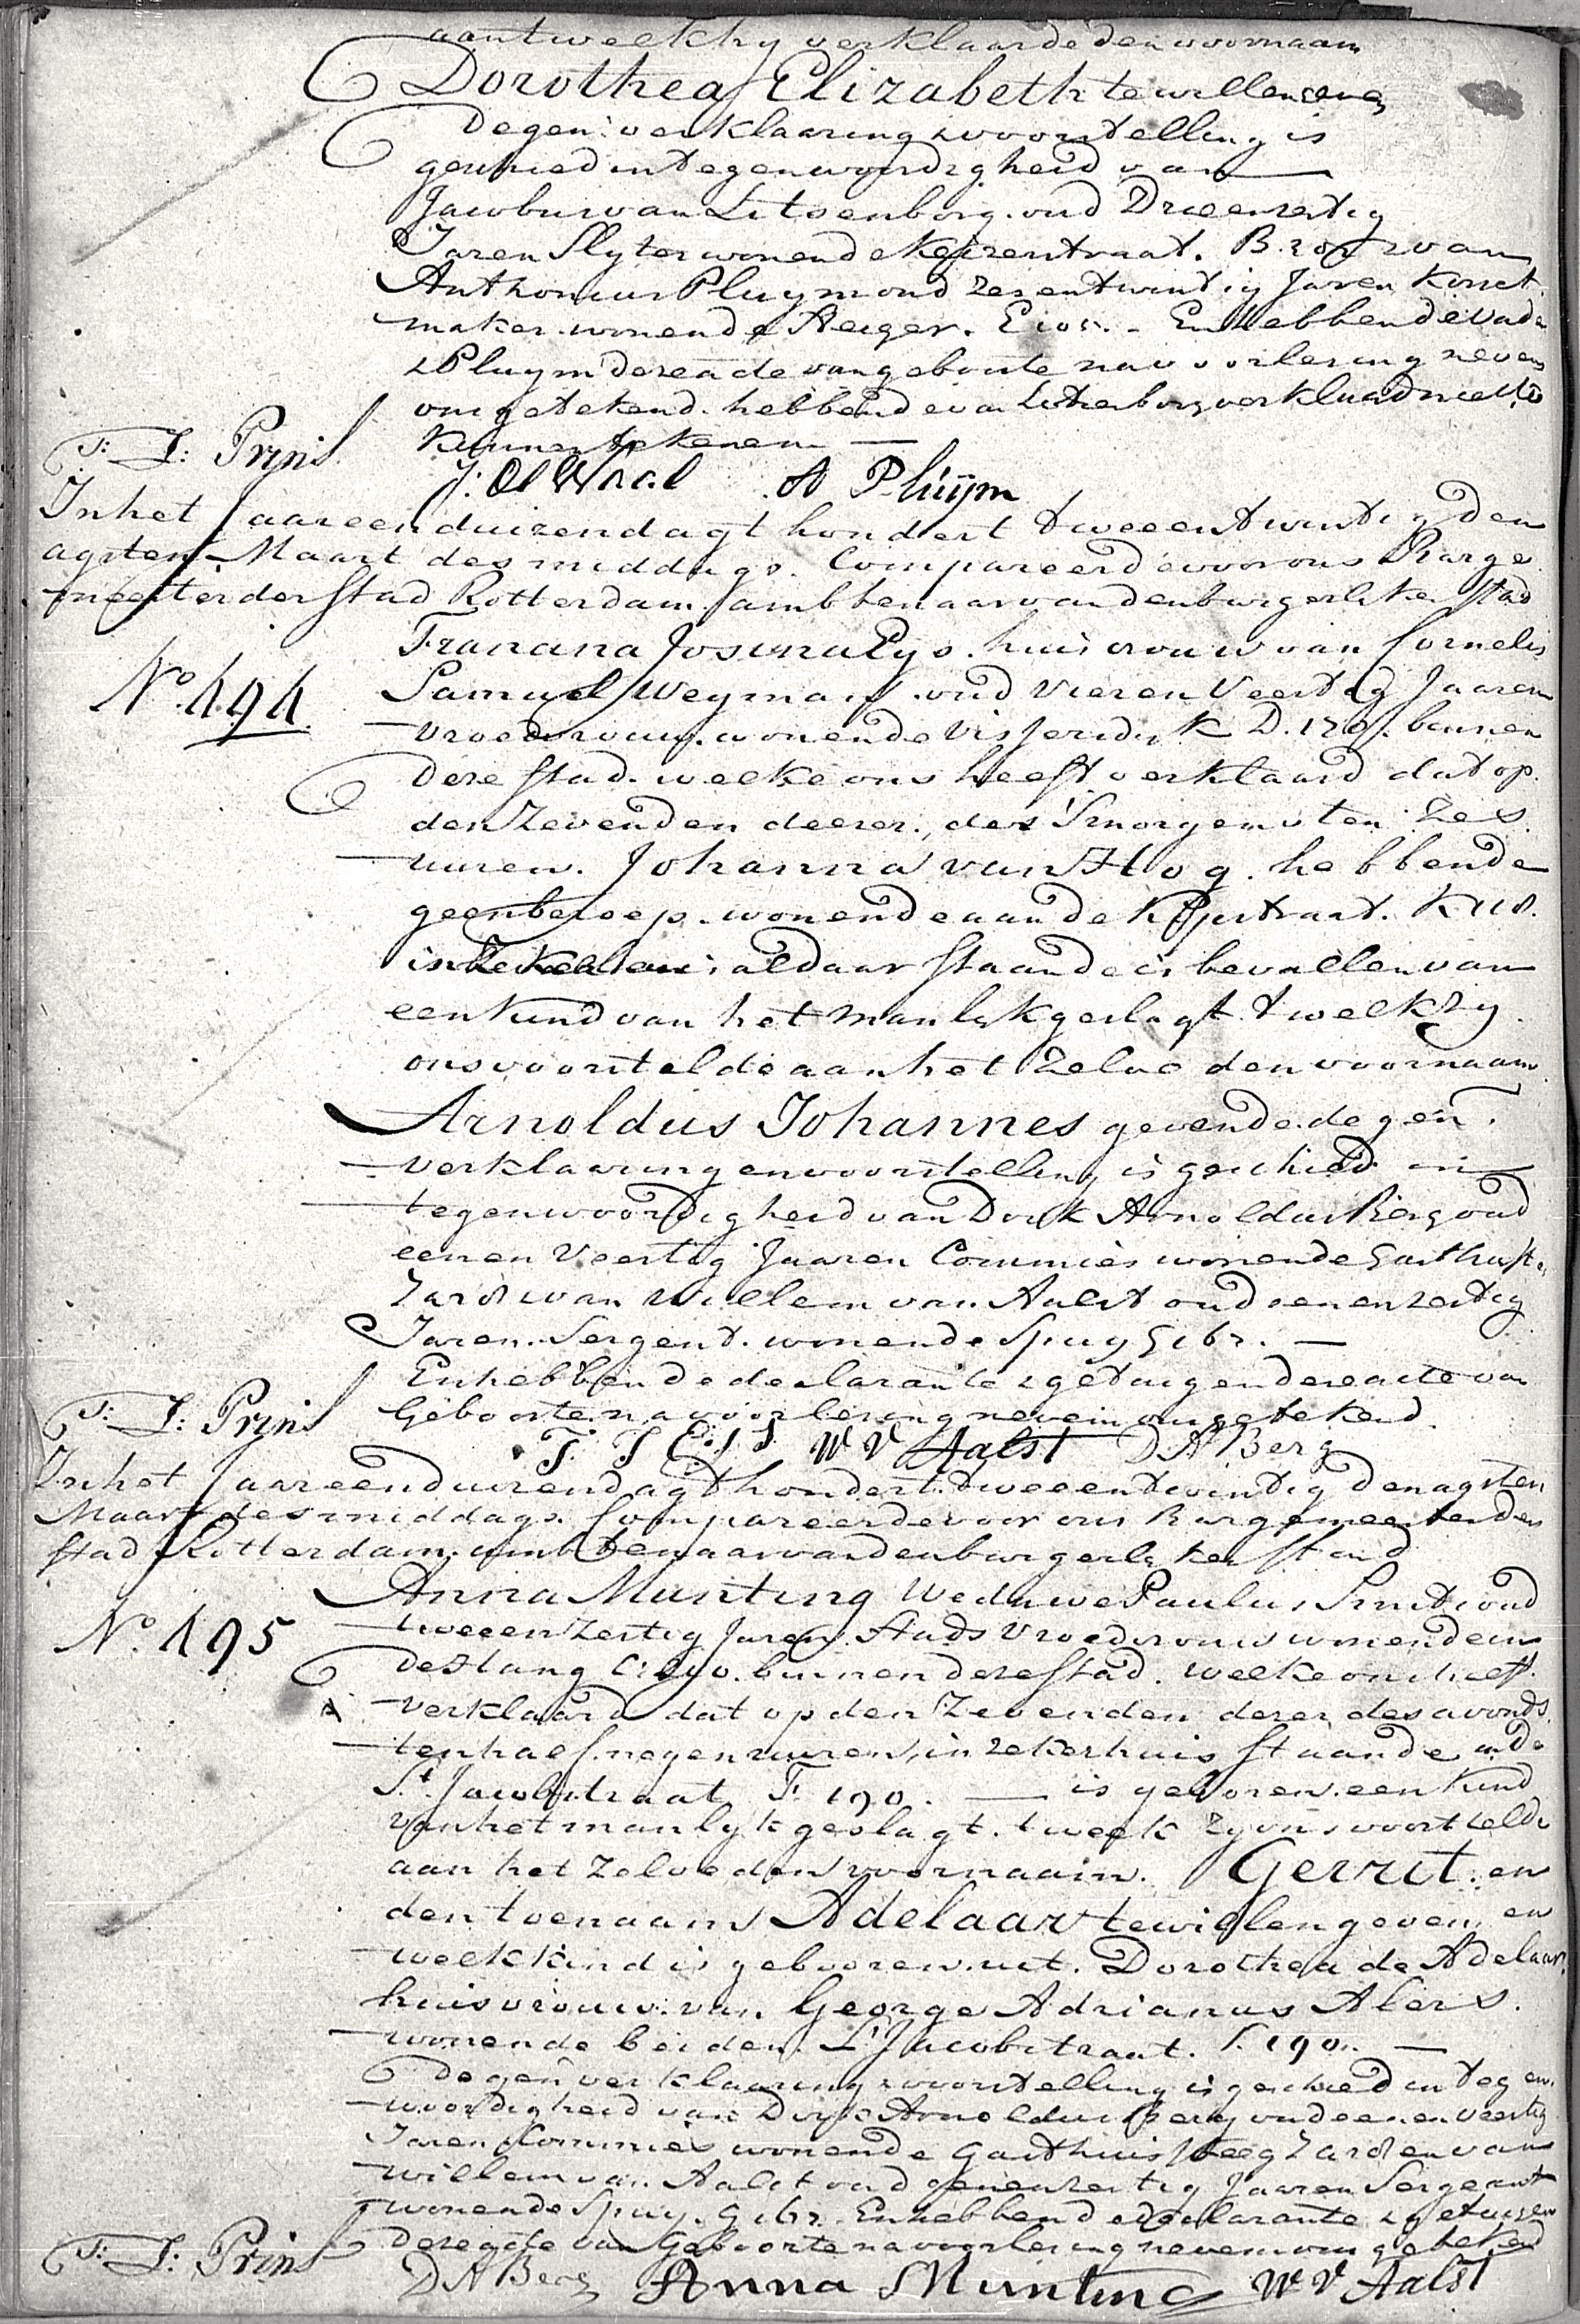 aan t welk hy verklaarde den voornaam
Dorothea Elizabeth te willen geven
De gen: verklaaring & voorstelling is
geschied in tegenwoordigheid van
Jacobus van Litsenborg oud Drieenzestig
Jaren Slyter wonende Keizerstraat. B. & van
Anthonius Pluym oud zesentwintig Jaren Korst
maker wonende Steiger. En hebbende vader
& Pluym deze acte van geboorte na voorlezing nevens
ons getekend. hebbende van Litsenborg verklaard niet te
kunnen tekenen
J: L: Prins
J: de Waal A Pluijm
In het Jaar een duizend agt hondert tweeentwintig den
agsten Maart des middags. Compareerde voor ons Burge
meester der Stad Rotterdam ambtenaar van den burgerlyken Stand
Franana Josina Eys. huisvrouw van Cornelis
No. 494.
Samuel Weyman oud Vieren Veertig Jaaren
vroedvrouw. wonende Vissersdyk D. binnen
deze stad. welke ons heeft verklaard dat op
den Zevenden deezer, des Smorgens ten Zes
uuren. Johanna van Hoog. hebbende
geen beroep. wonende aan de Kipstraat. K 118.
in zeker huis aldaar staande is bevallen van
een kind van het manlyk geslagt. t welk zy
ons voorstelde aan het zelve den voornaam
Arnoldus Johannes gevende. de gen:
verklaaring en voorstelling is geschied in
tegenwoordigheid van Dirk Arnoldus Berg oud
eenen Veertig Jaaren Commies wonende Gasthuisst:
van Willem van Aalst oud eenenzestig
Jaren. Sergent. wonende Spuy G 162.
En hebben de declarante & getuigen deze acte van
J: L: Prins
Geboorte na voorlezing nevens ons getekend.
F. J Eys W V Aalst D A Berg
In het Jaar eenduizend agt hondert tweeentwintig den agsten
Maart des middags. Compareerde voor ons Burgemeester der
stad Rotterdam, ambtenaar van den burgerlyken stand
Anna Munting Weduwe Paulus Smit oud
No. 495
tweeenzestig Jaren. Stads Vroedvrouw wonende in
de Slang binnen deze stad. welke ons heeft
verklaard dat op den Zevenden dezer des avonds
ten half negen uuren, in zeker huis staande in de
St. Jacobstraat F. 190. is geboren een kind
van het manlyk geslagt. t welk zy ons voorstelde
aan het zelve den voornaam. Gerrit. en
den toenaam Adelaar te willen geven, en
welk kind is gebooren uit. Dorothea de Adelaar
huisvrouw van George Adrianus Alers.
wonende beiden. St Jacobstraat. F. 190.
De gen: verklaaring & voorstelling is geschied in tegen
woordigheid van Dirk Arnoldus Berg oud eenen veertig
Jaren Commies wonende Gasthuissteeg en van
Willem van Aalst oud eenenzestig Jaaren Sergeant
wonende Spuy. G 162. En hebbende declarante & getuigen
J: L: Prins
deze acte van Geboorte na voorlezing nevens ons getekend
D A Berg Anna Munting W V Aalst